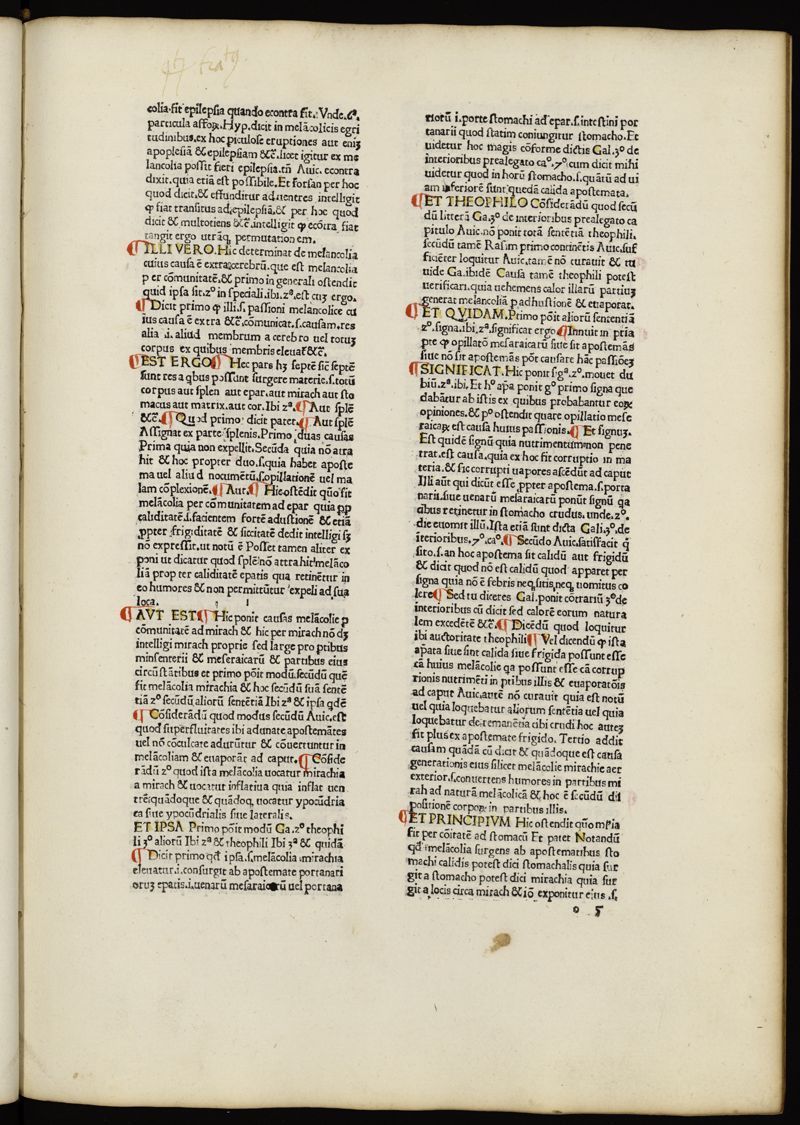 colia.fit epilepsia quando econtra fit.: Vnde.6ª.
particula affoꝝ.Hyp.dicit in melācolicis egri
tudinibus.ex hoc piculose eruptiones aut eniȝ
apoplesiā &epilepsiam &c̄.licet igitur ex me
lancolia possit fieri epilepsia.tn̄ Auic.econtra
dixit.quia etiā est possibile.Et forsan per hoc
quod dicit.&effunditur aduentres intelligit
ꝙ fiat transitus ad.epilepsiā.& per hoc quod
dicit & multotiens &c̄.intelligit ꝙ ecōtra fiat
tangit ergo utrāq permutationem.
¶ILLI VERO.Hic determinat de melancolia
cuius causa ē extra:cerebrū.que est melancolia
per cōmunitatē.& primo in generali ostendit
quid ipsa sit.2º in speciali.ibi.2ª.est cuȝ ergo.
¶Dicit primo ꝙ illi.s.passioni melancolice cu
ius causa ē extra &c̄.cōmunicat.s.causam.res
alia .i. aliud membrum a cerebro uel totuȝ
corpus ex quibus membris eleuat̃&c̄.
¶EST ERGO¶ Hec pars hȝ septē sic̄ septē
sunt res a qbus possunt surgere materie.s.totū
corpus aut splen aut epar.aut mirach aut sto
macus aut matrix.aut cor.Ibi 2ª.¶Aut splē
&c̄.¶Quod primo dicit patet.¶Aut splē
Assignat ex parte splenis.Primo duas causas
Prima quia non expellit.Secūda quia nō attra
hit & hoc propter duo.s.quia habet aposte
ma uel aliud nocumētū.s.opillationē uel ma
lam cōplexionē.¶Aut.¶Hic ostēdit quō sit
melācolia per cōmunitatem ad epar quia ꝓp
caliditatē.s.facientem fortē adustionē & etiā
ꝓpter frigiditatē & siccitatē dedit intelligi sȝ
nō expressit.ut notū ē Posset tamen aliter ex
poni ut dicatur quod splē nō attrahit melāco
liā propter caliditatē epatis qua retinētur in
eo humores &non permittūtur expeli ad sua
loca.
¶AVT EST¶ Hic ponit causas melācolie p
cōmunitatē ad mirach & hic per mirach nō dȝ
intelligi mirach proprie sed large pro ptibus
minsenterii & meseraicarū & partibus eius
circūstātibus et primo poit modū.secūdū quē
fit melācolia mirachia & hoc secūdū suā sentē
tiā 2º secūdū aliorū sentētiā Ibi 2ª & ipsa qdē
¶Cōsiderādū quod modus secūdū Auic.est
quod superfluitates ibi adunate apostemātes
uel nō cōculcate adurūtur & cōuertuntur in
melācoliam & euaporāt ad caput.¶Cōside
rādū 2º quod ista melācolia uocatur mirachia
a mirach & uocatur inflatiua quia inflat uen
trē:quādoque & quādoq, uocatur ypocūdria
ca siue ypocūdrialis siue lateralis.
ET IPSA Primo pōit modū Ga.2º theophi
li 3º aliorū Ibi 2ª &theophili Ibi 3ª & quidā
¶Dicit primo qd̄ ipsa.s.melācolia .mirachia
eleuatur.i.consurgit ab apostemate portanari
oruȝ epatis.i.uenarū mesaraicarū uel portana
riorū i.porte stomachi ad epar.s.intestini por
tanarii quod statim coniungitur stomacho.Et
uidetur hoc magis cōforme dictis Gal.3º de
interioribus prealegato caº.7º.cum dicit mihi
uidetur quod in horū stomacho.s.quātū ad ui
am inferiorē sunt quedā calida apostemata.
¶ET THEOPHILO Cōsiderādū quod secū
dū litterā Ga.3º de interioribus prealegato ca
pitulo Auic.nō ponit totā sentētiā theophili.
secūdū tamē Rasim primo continētis Auic.suf
ficiēter loquitur Auic.tamē nō curauit & tu
uide Ga.ibidē Causa tamē theophili potest
uerificari.quia uehemens calor illarū partiuȝ
generat melancoliā p adhustionē & euaporat.
¶ET QVIDAM.Primo pōit aliorū sentencitā
2º.signa.ibi.2ª.significat ergo ¶Innuit in pria
pte ꝙ opillatō mesaraicarū siue sit apostemāṡ
siue nō sit apostemās pōt causare hāc passiōeȝ
¶SIGNIFICAT.Hic ponit sgª.2º.mouet du
biū.2ª.ibi.Et hº apa ponit gº primo signa que
dabātur ab istis ex quibus probabantur eoꝝ
opiniones.& pº ostendit quare opillatio mese
raicaꝝ est causa huius passionis.¶Et signuȝ.
Est quidē signū quia nutrimentum non pene
trat.est causa.quia ex hoc fit corruptio in ma
teria.& sic corrupti uapores ascēdūt ad caput
Illi aūt qui dicūt esse ꝓpter apostema.s.porta
narii.siue uenarū mesaraicarū ponūt signū ꝗa
cibus retinetur in stomacho crudus.unde.2º.
die euomit illū.Ista etiā sunt dicta Gali.3º.de
iterioribus.7º.caº.¶Secūdo Auic.satisfacit ꝗ
sito.s.an hoc apostema sit calidū aut frigidū
& dicit quod nō est calidū quod apparet per
signa quia nō ē febris neq,sitis,neq, uomitus co
lere¶Sed tu diceres Gal.ponit cōtrariū 3º de
interioribus cū dicit sed calorē eorum natura
lem excedētē &c̄.¶Dicēdū quod loquitur
ibi auctoritate theophili¶Vel dicendū ꝙ ista
apata siue sint calida siue frigida possunt esse
cā huius melācolie qa possunt esse cā corrup
tionis nutrimēti in ptibus illis & euaporatōis
ad caput Auic.autē nō curauit quia est notū
uel quia loquebatur aliorum sentētia uel quia
loquebatur de remanētia cibi crudi hoc auteȝ
fit plus ex apostemate frigido. Tertio addit
causam quādā cū dicit & quādoque est causa
generationis eius silicet melācolie mirachie aer
exterior.s.conuertens humores in partibus mi
rach ad naturā melācolicā & hoc ē secūdū dil
positionē corpoꝝ in partibus illis.
¶ET PRINCIPIVM Hic ostendit quō mpia
fit per cōitatē ad stomacū Et patet Notandū
qd̄ melācolia surgens ab apostematibus sto
machi calidis potest dici stomachalis quia sur
git a stomacho potest dici mirachia quia sur
git a locis circa mirach & iō exponitur eius .s.
o 5